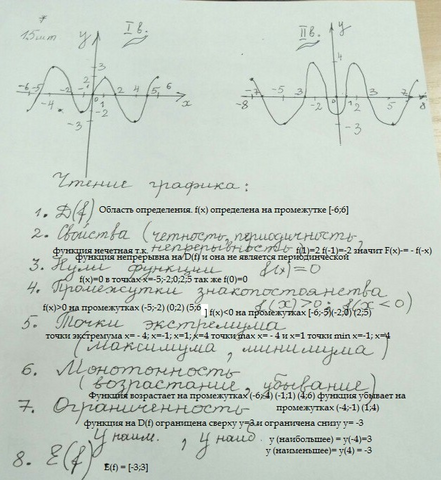 15 мин
I в.
II в.
y
y
3
4
-6 -5 -4 -2 -1 0 1 2 4 5 6 x
-8 -7 -3 0 3 7 8 x
-2
-3
-3
Чтение графика:
1. D(f) Область определения. f(x) определена на промежутке [-6;6]
2. Свойства (четность, периодичность,
непрерывность)
функция нечетная т.к. f(1)=2 f(-1)=-2 значит F(x)-= - f(-x)
функция непрерывна на D(f) и она не является периодической
3. Нули функции f(x)=0
f(x)=0 в точках x=-5;-2;0;2;5 так же f(0)=0
4. Промежутки знакопостоянства
f(x)>0; f(x<0)
f(x)>0 на промежутках (-5;-2) (0;2) (5;6 f(x)<0 на промежутках [-6;-5)(-2;0)(2;5)
5. Точки экстремума
точки экстремума x= - 4; x=-1; x=1; x=4 точки max x= - 4 и x=1 точки min x=-1; x=4
(максимума, минимума)
6. Монотонность
(возрастание, убывание)
Функция возрастает на промежутках (-6;-4) (-1;1) (4;6) функция убывает на
промежутках (-4;-1) (1;4)
7. Ограниченность
функция на D(f) ограницена сверху y=3 и ограничена снизу y= -3
y наим. , y наиб.
y (наибольшее) = y(-4)=3
y (наименьшее)= y(4) = -3
8. E(f) E(f) = [-3;3]